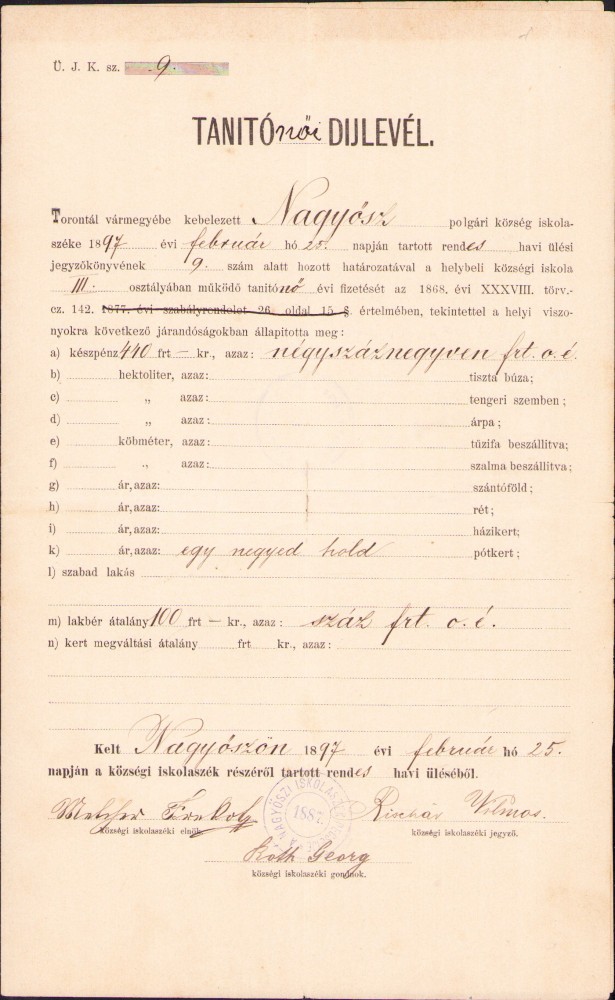 Ü. J. K. sz. 9.
TANITÓnői DIJLEVÉL.
Torontál vármegyébe kebelezett Nagyősz polgári község iskola-
széke 1897 évi február hó 25. napján tartott rendes havi ülési
jegyzőkönyvének 9. szám alatt hozott határozatával a helybeli községi iskola
III. osztályában működő tanítónő évi fizetését az 1868. évi XXXVIII. törv.-
cz. 142. 1877. évi szabályrendelet 26. oldal 15 §. értelmében, tekintettel a helyi viszo-
nyokra következő járandóságokban állapitotta meg:
a) készpénz 440 frt — kr., azaz: négyszáznegyven frt. o. é.
b) hektoliter, azaz: tiszta búza;
c) „ azaz: tengeri szemben;
d) „ azaz: árpa;
e) köbméter, azaz: tűzifa beszállitva;
f) „ azaz: szalma beszállitva;
g) ár, azaz: szántóföld;
h) ár, azaz: rét;
i) ár, azaz: házikert;
k) ár, azaz: egy negyed hold pótkert;
l) szabad lakás
m) lakbér átalány 100 frt — kr., azaz: száz frt. o. é.
n) kert megváltási átalány frt kr., azaz:
Kelt Nagyőszön 1897 évi február hó 25.
napján a községi iskolaszék részéről tartott rendes havi üléséből.
NAGYŐSZI ISKOLASZÉK
1887.
Vilmos.
községi iskolaszéki elnök. községi iskolaszéki jegyző.
Róth Georg
községi iskolaszéki gondnok.